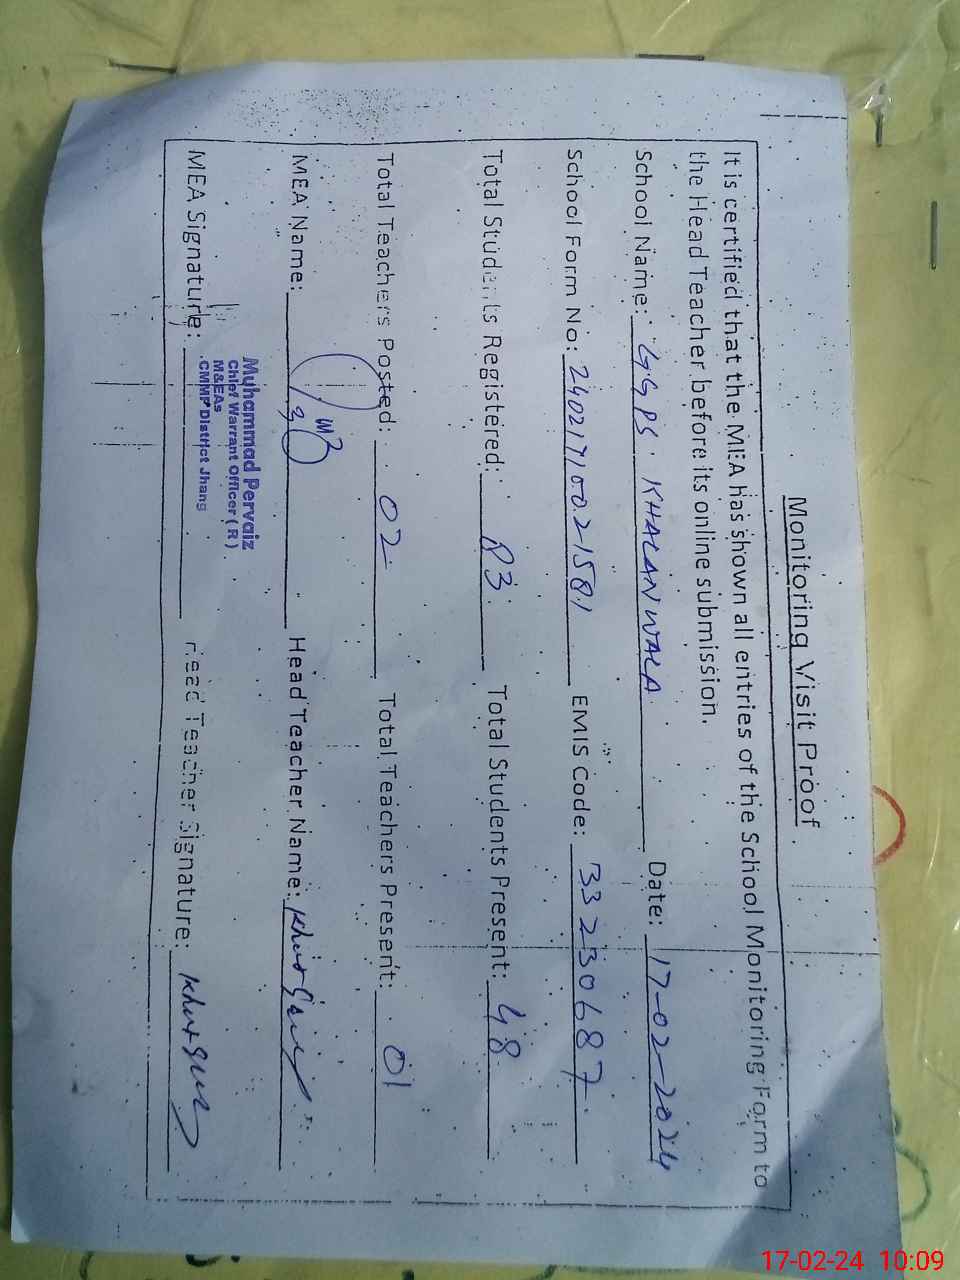 Monitoring Visit Proof
It is certified that the MEA has shown all entries of the School Monitoring Form to
the Head Teacher before its online submission.
School Name: GGPS. KHALANWALA Date: 17-02-2024
School Form No: 24021710021581 EMIS Code: 33230687
Total Students Registered: 83 Total Students Present: 48
Total Teachers Posted: 02 Total Teachers Present: 01
MEA Name: Head Teacher Name:
MEA Signature: Head Teacher Signature:
Muhammad Pervaiz
Chief Warrant Officer (R)
M&EAs
CMMF District Jhang
17-02-24 10:09